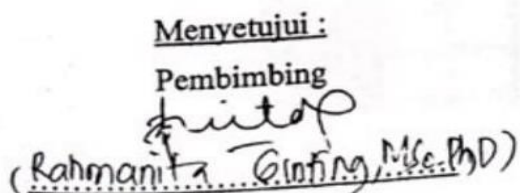 Menyetujui :
Pembimbing
(Rahmanita Ginting, MSc. PhD)